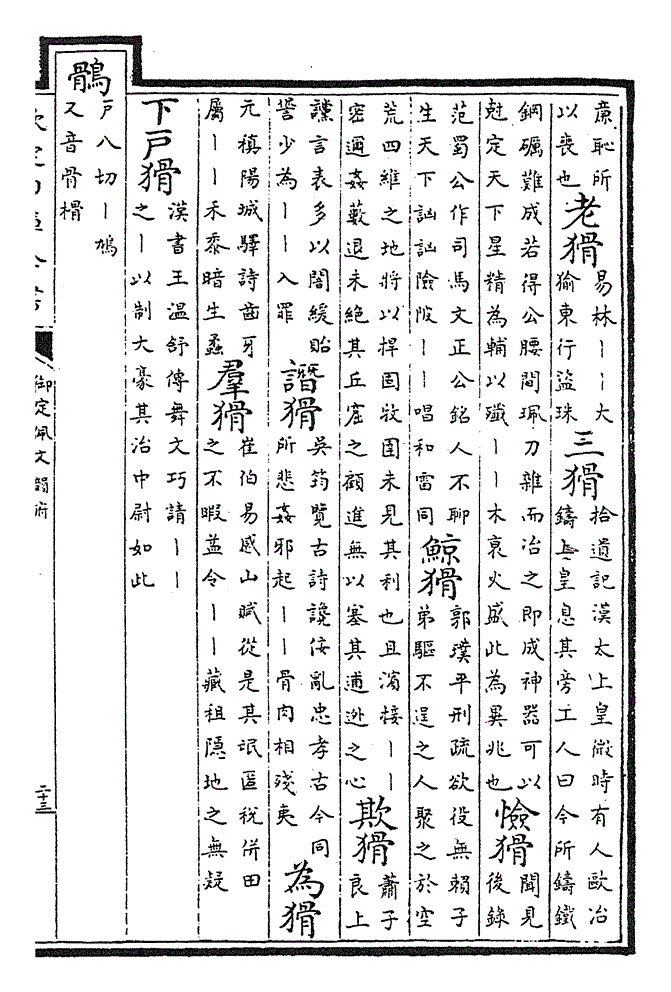 廉恥所
以喪也
老猾
易林丨丨大
偷東行盜珠
三猾
拾遺記漢太上皇微時有人歐冶
鑄上皇息其旁工人曰今所鑄鐵
鋼礪難成若得公腰間珮刀雜而冶之即成神器可以
尅定天下星精為輔以殲丨丨木衰火盛此為異兆也
憸猾
聞見
後錄
范蜀公作司馬文正公銘人不聊
生天下詾詾險陂丨丨唱和雷同
鯨猾
郭璞平刑疏欲役無賴子
弟驅不逞之人聚之於空
荒四維之地將以捍固牧圉未見其利也且濱接丨丨
密邇姦藪退未絕其丘窟之顧進無以塞其逋逃之心
欺猾
蕭子
良上
讜言表多以闇緩貽
諐少為丨丨入罪
譖猾
吳筠覽古詩讒佞亂忠孝古今同
所悲姦邪起丨丨骨肉相殘夷
為猾
元稹陽城驛詩齒牙
屬丨丨禾黍暗生蟊
羣猾
崔伯易感山賦從是其氓匿稅併田
之不暇蓋令丨丨藏租隱地之無疑
下戸猾
漢書王温舒傳舞文巧請丨丨
之丨以制大豪其治中尉如此
鶻
戸八切丨鳩
又音骨榾
欽定四庫全書
御定佩文韻府
二十三